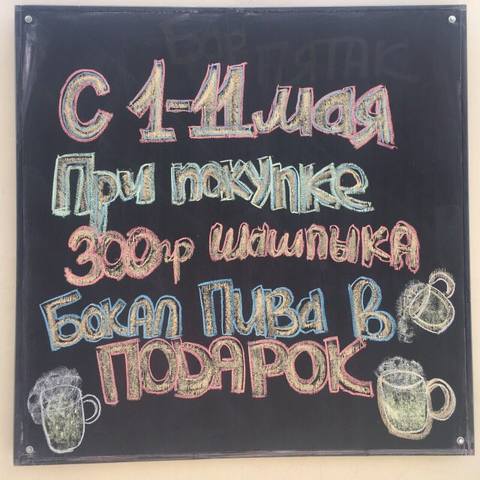 С 1-11 мая
При покупке
300гр шашлыка
Бокал Пива в
ПОДАРОК